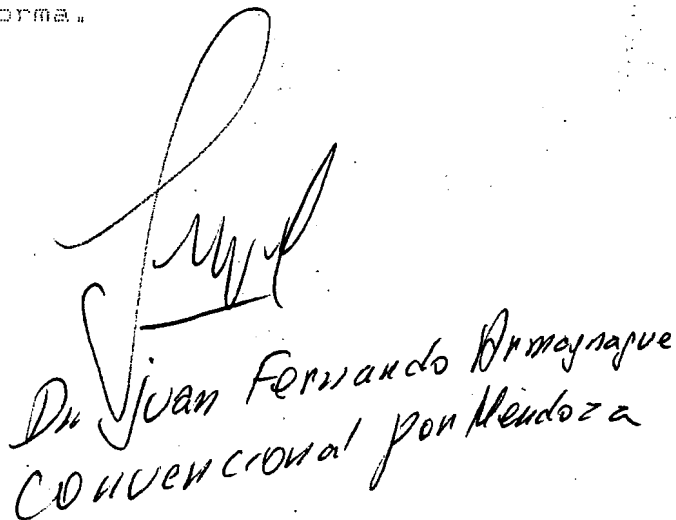 orma.
Dr Juan Fernando Armagnague
Convencional por Mendoza